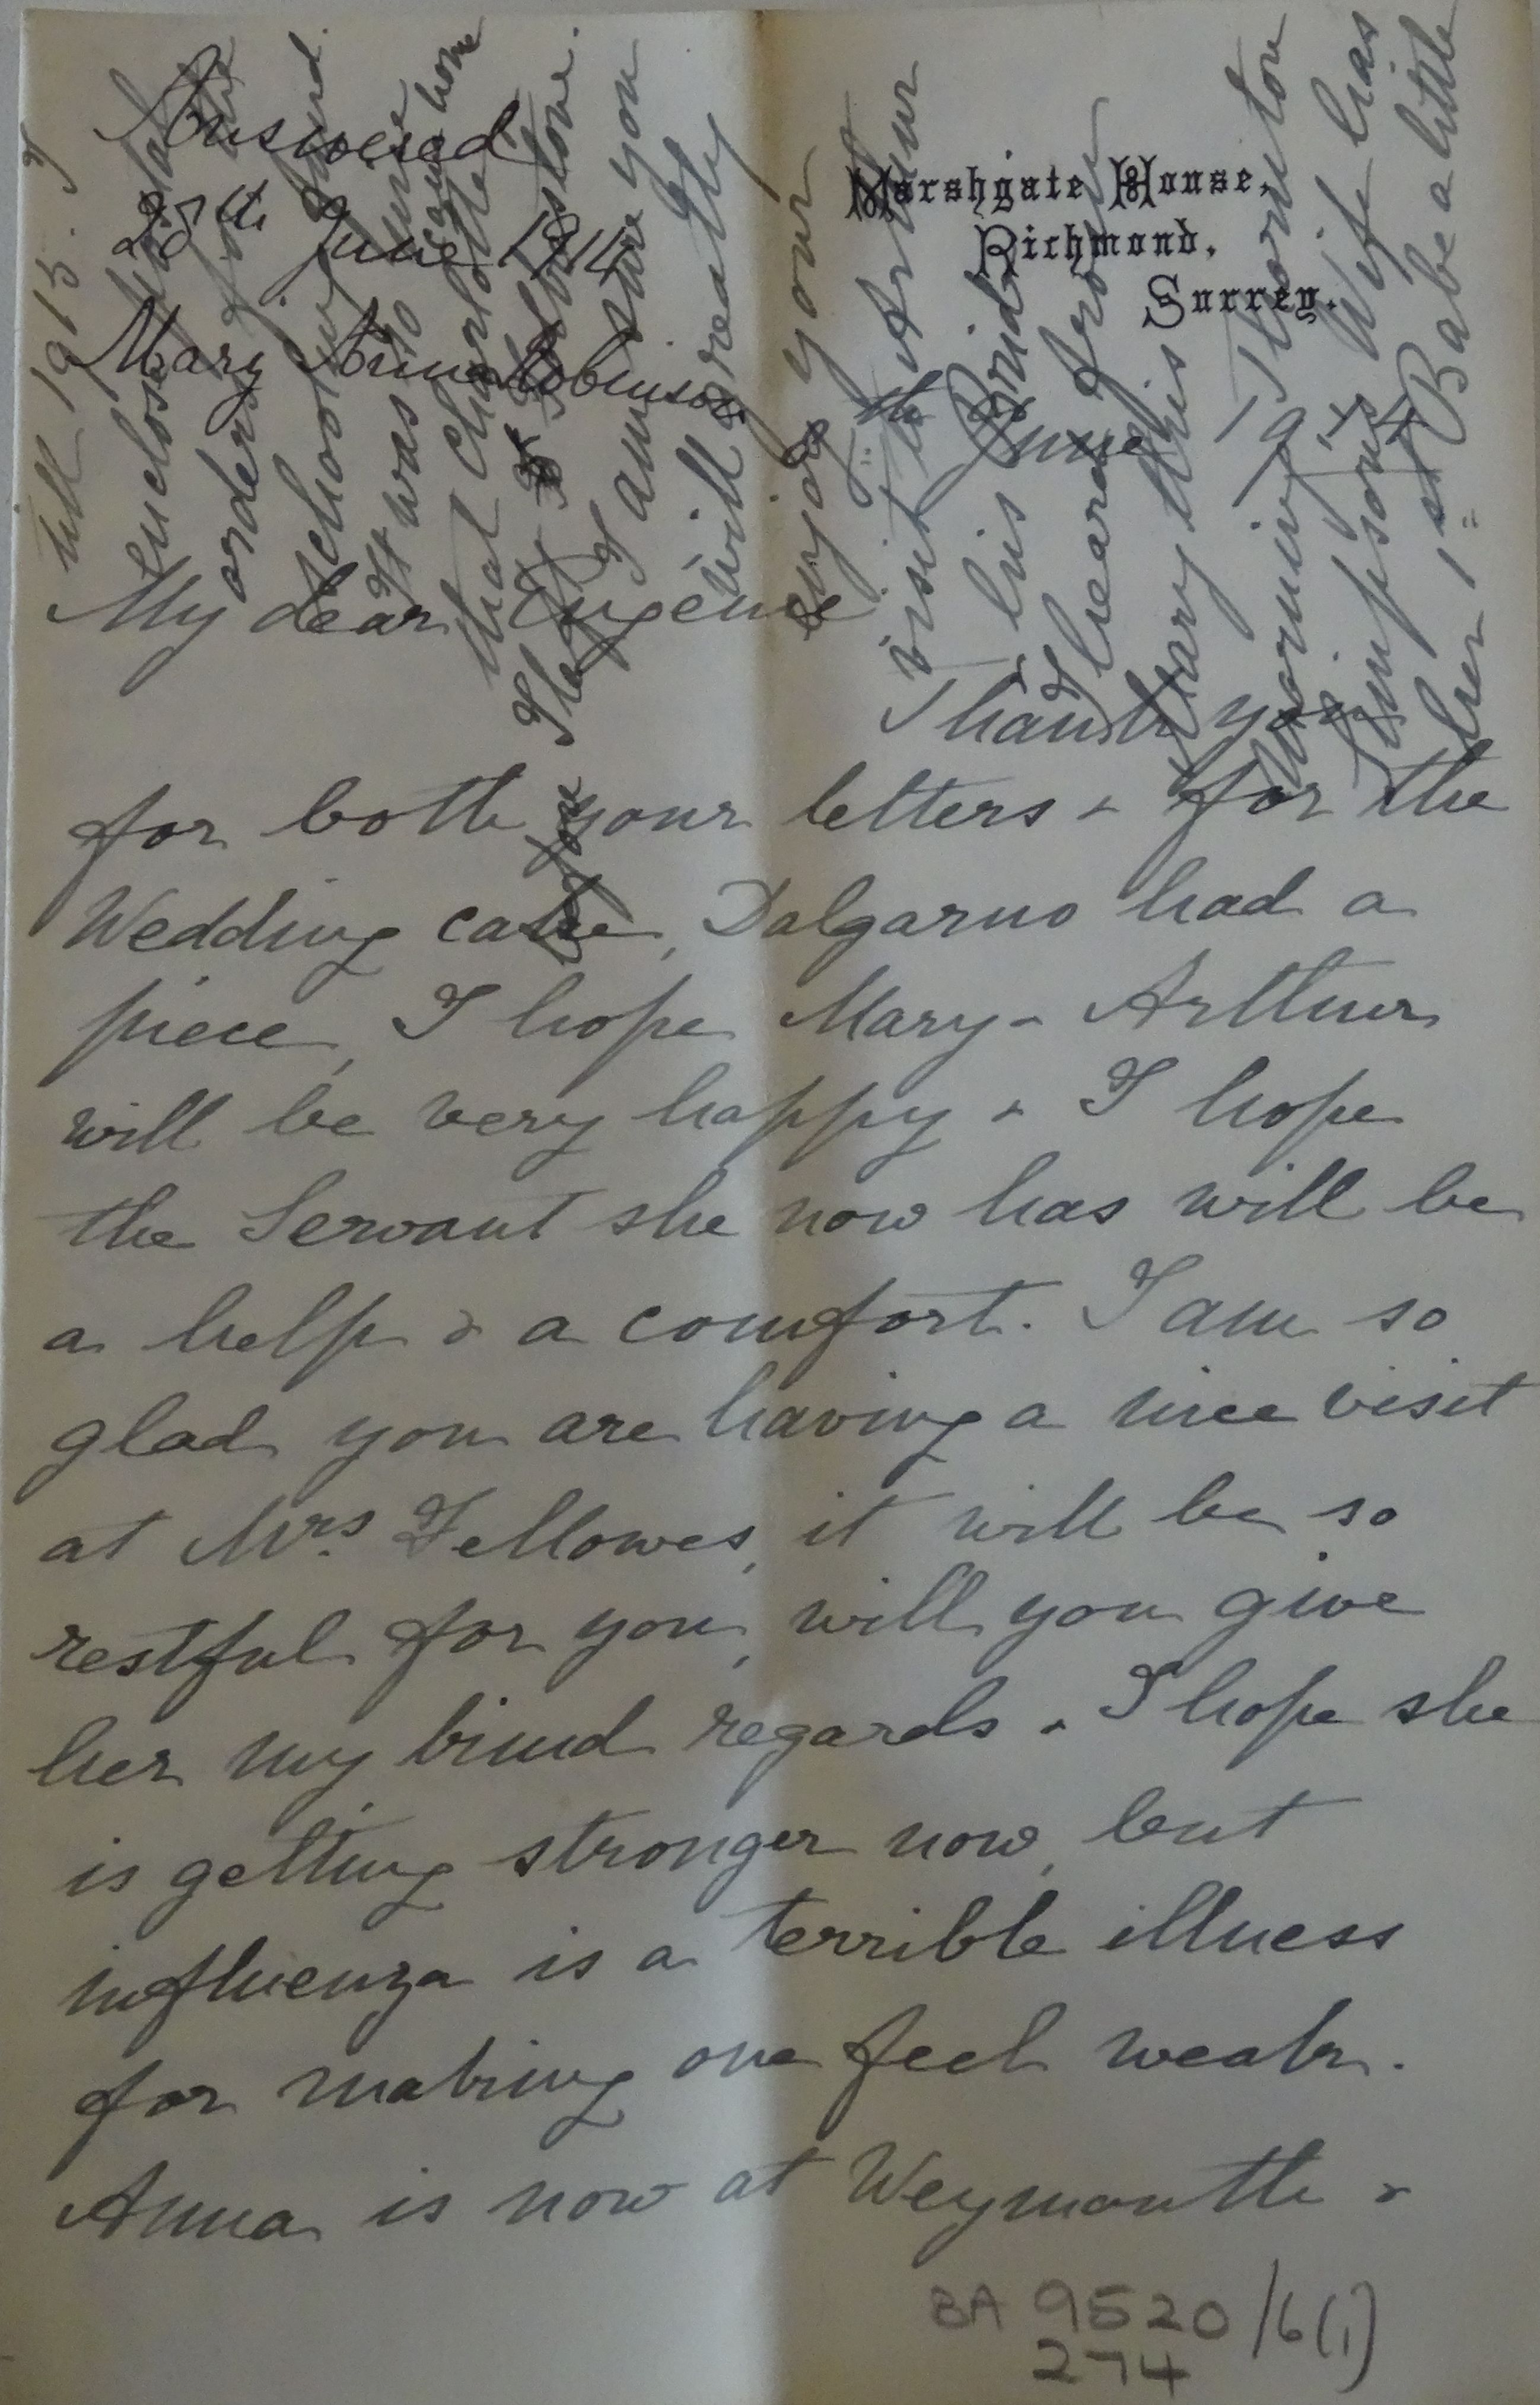 Answered
28th June 1914
Mary Anna Robinson
Marshgate House,
Richmond,
Surrey.
th June 1914
My dear Eugenie
Thank you
for both your letters & for the
Wedding cake, Dalgarno had a
piece, I hope Mary & Arthur
will be very happy & I hope
the Servant she now has will be
a help & a comfort. I am so
glad you are having a nice visit
at Mrs. Fellowes, it will be so
restful for you, will you give
her my kind regards & I hope she
is getting stronger now, but
influenza is a terrible illness
for making one feel weak.
Anna is now at Weymouth &
till 1915. I
enclose
orders
school
It was so
that Charlotte came home
before
I am sure you
will greatly
enjoy your
visit to Arthur
& his Bride
I heard from
Mary this
morning Thornton
Simpsons Wife has
her 1st Babe a little
BA 9520/6(1)
274